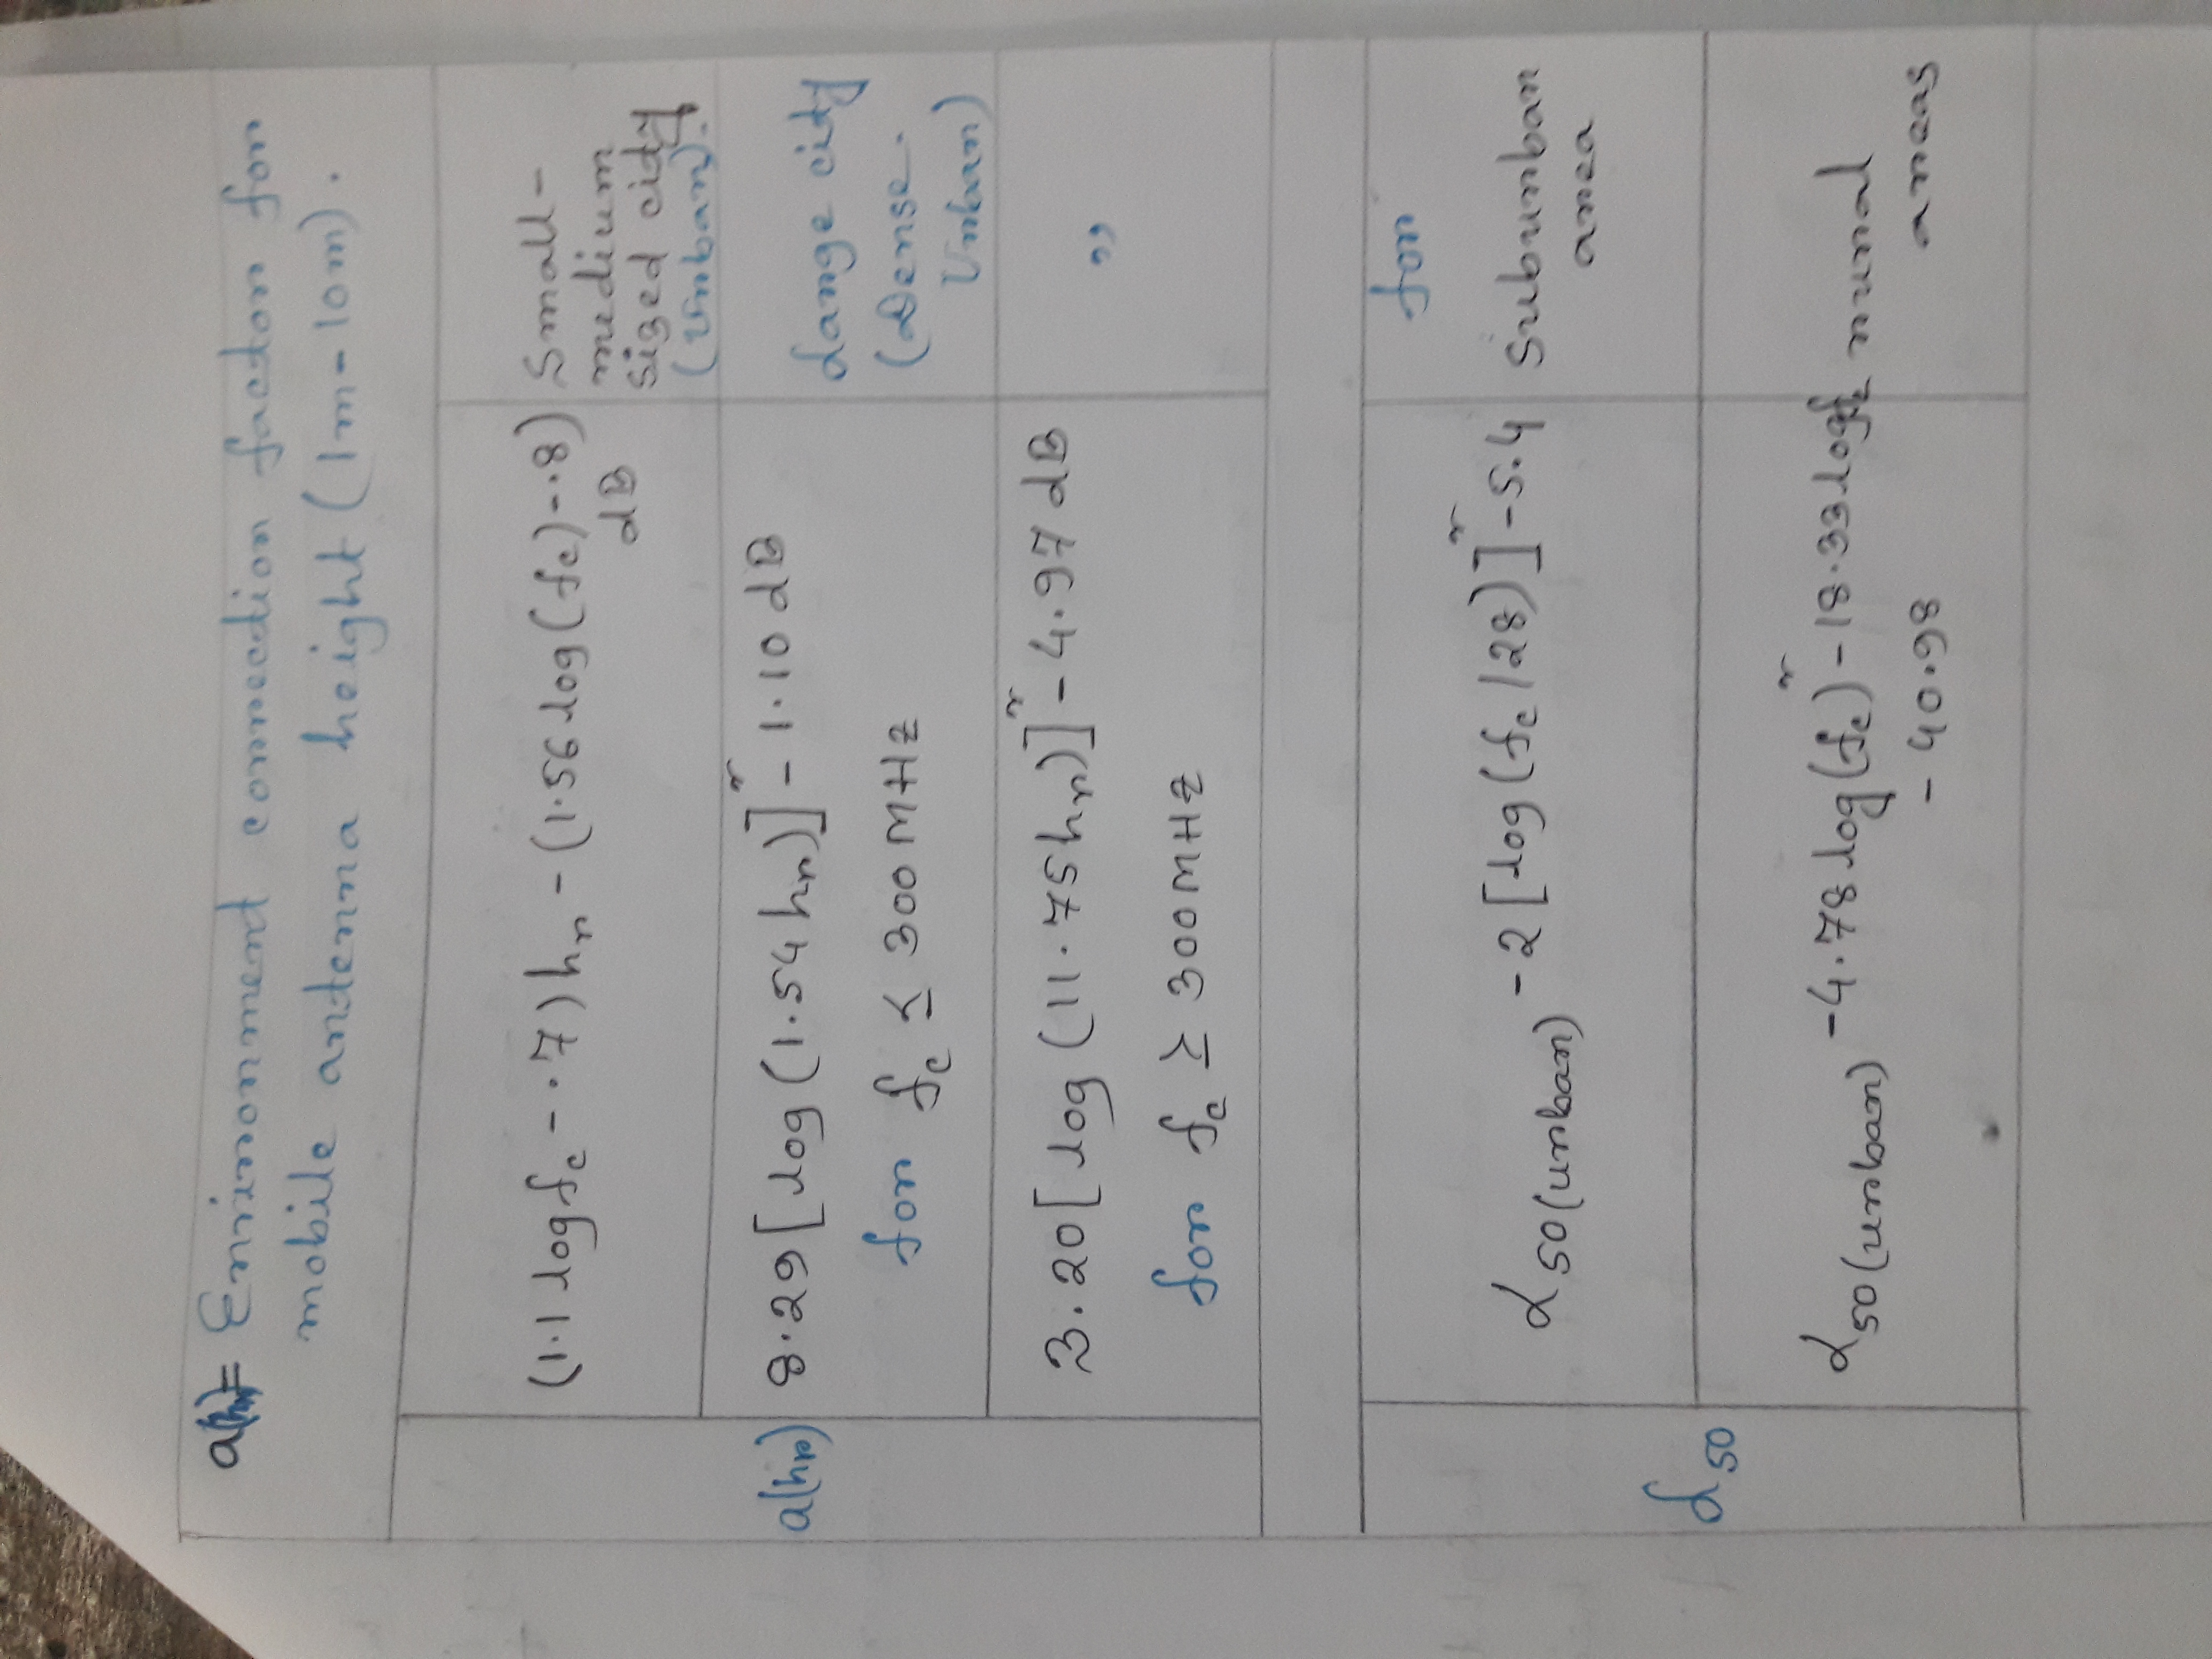 a(hr)= Environment correction factor for
mobile antenna height (1m-10m).
(1.1 log fc - .7) hr - (1.56 log (fc) - .8)
dB
Small-
medium
sized city
(Urban).
a(hr)
8.29 [log (1.54 hr)]² - 1.10 dB
for fc ≤ 300 MHz
Large city
(Dense
Urban)
3.20 [log (11.75 hr)]² - 4.97 dB
for fc ≥ 300 MHz
"
L50
L50(urban) - 2 [log (fc/28)]² - 5.4
for
suburban
area
L50(urban) - 4.78 log (fc)² - 18.33 log fc
- 40.98
rural
areas